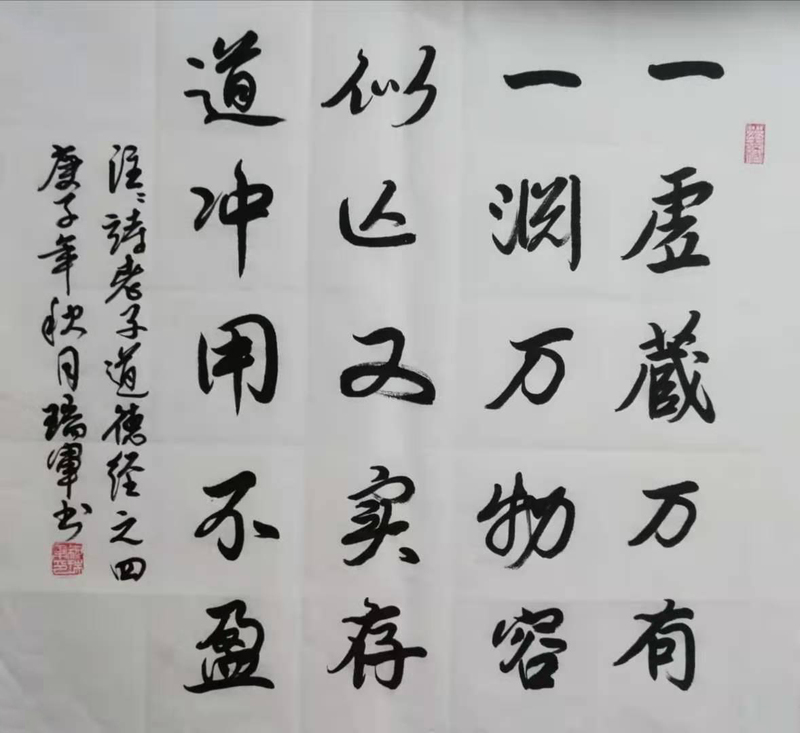 一虚藏万有
一渊万物容
似亾又实存
道冲用不盈
詩老子道德经之四
庚子年秋月瑞軍书